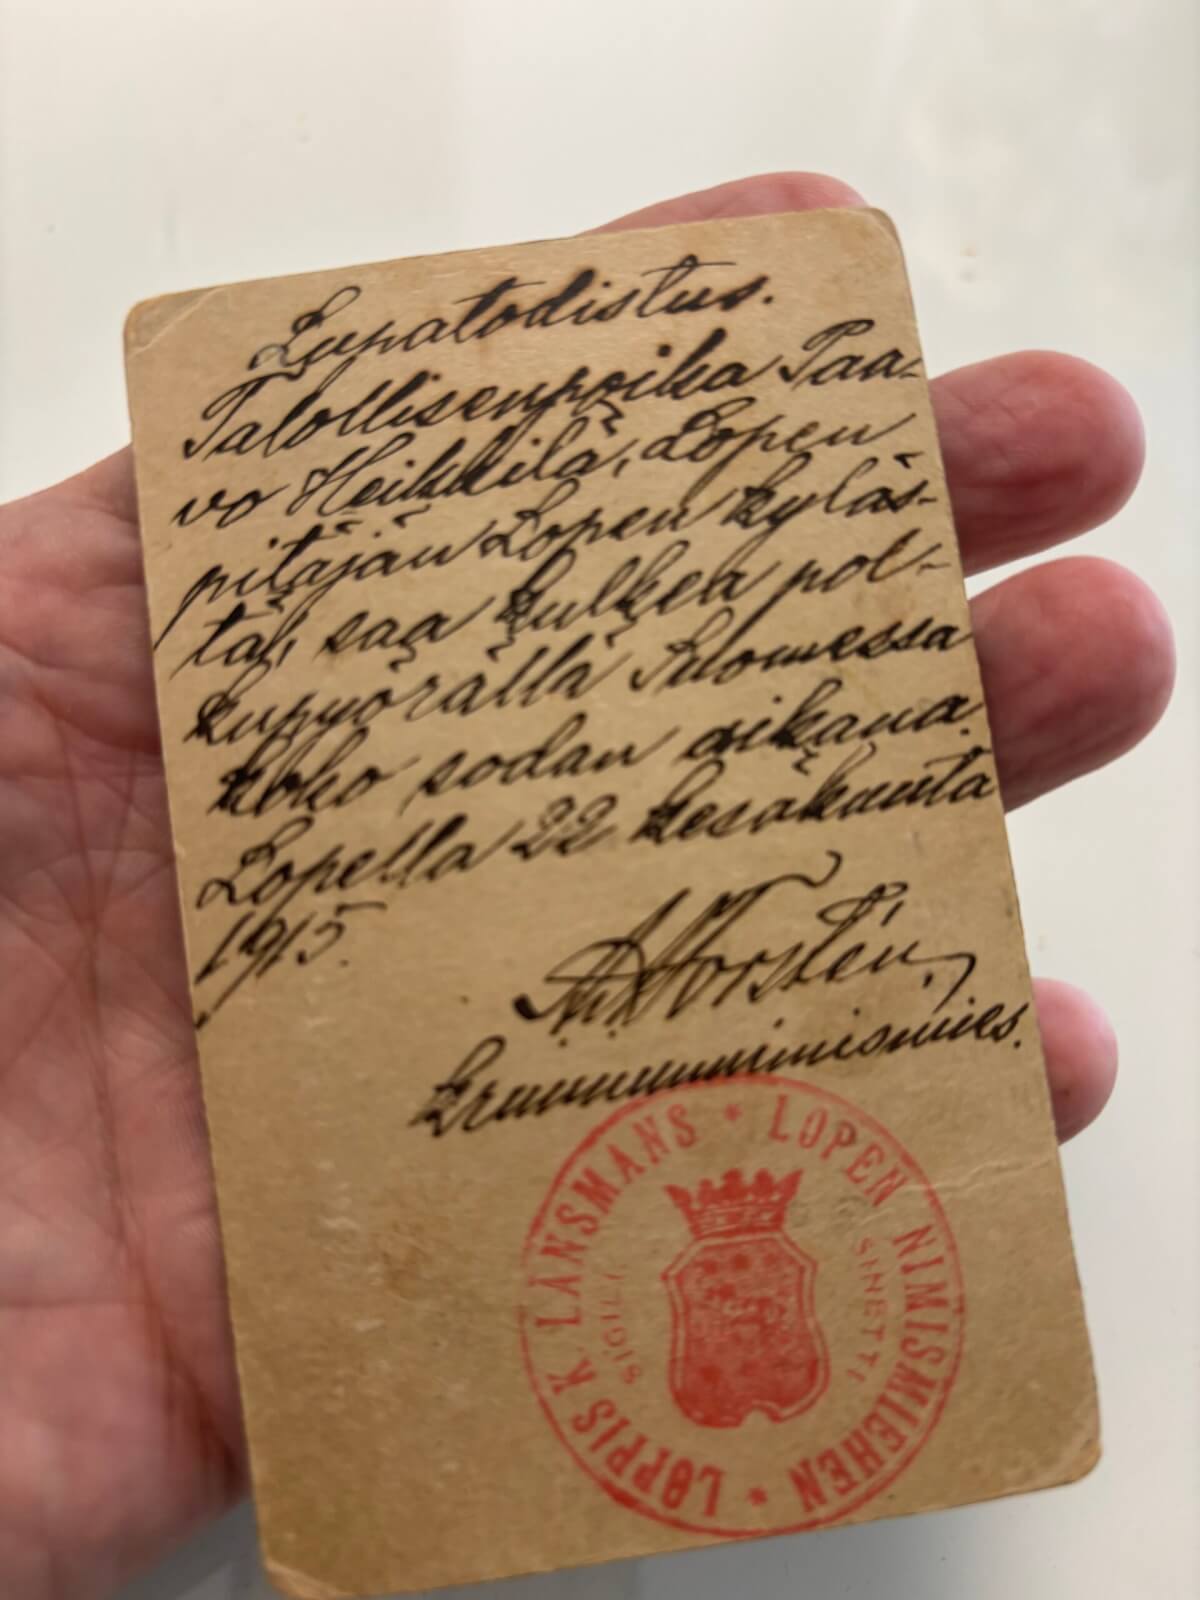 Lupatodistus.
Talollisenpoika Paa-
vo Heikkilä, Lopen
pitäjän Lopen kyläs-
tä, saa kulkea pol-
kupyörällä Suomessa
koko sodan aikana.
Lopella 22 kesäkuuta
1915.
Forstén,
kruununnimismies.
LOPPIS K. LÄNSMANS * LOPEN NIMISMIEHEN *
SIGILL SINETTI